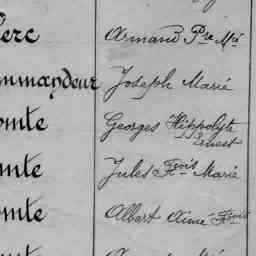 lerc Armand Pre Mie
ommandeur Joseph Marie
omte Georges Hippolyte
Ernest
omte Jules Fçois Marie
omte Albert Aimé Fçois